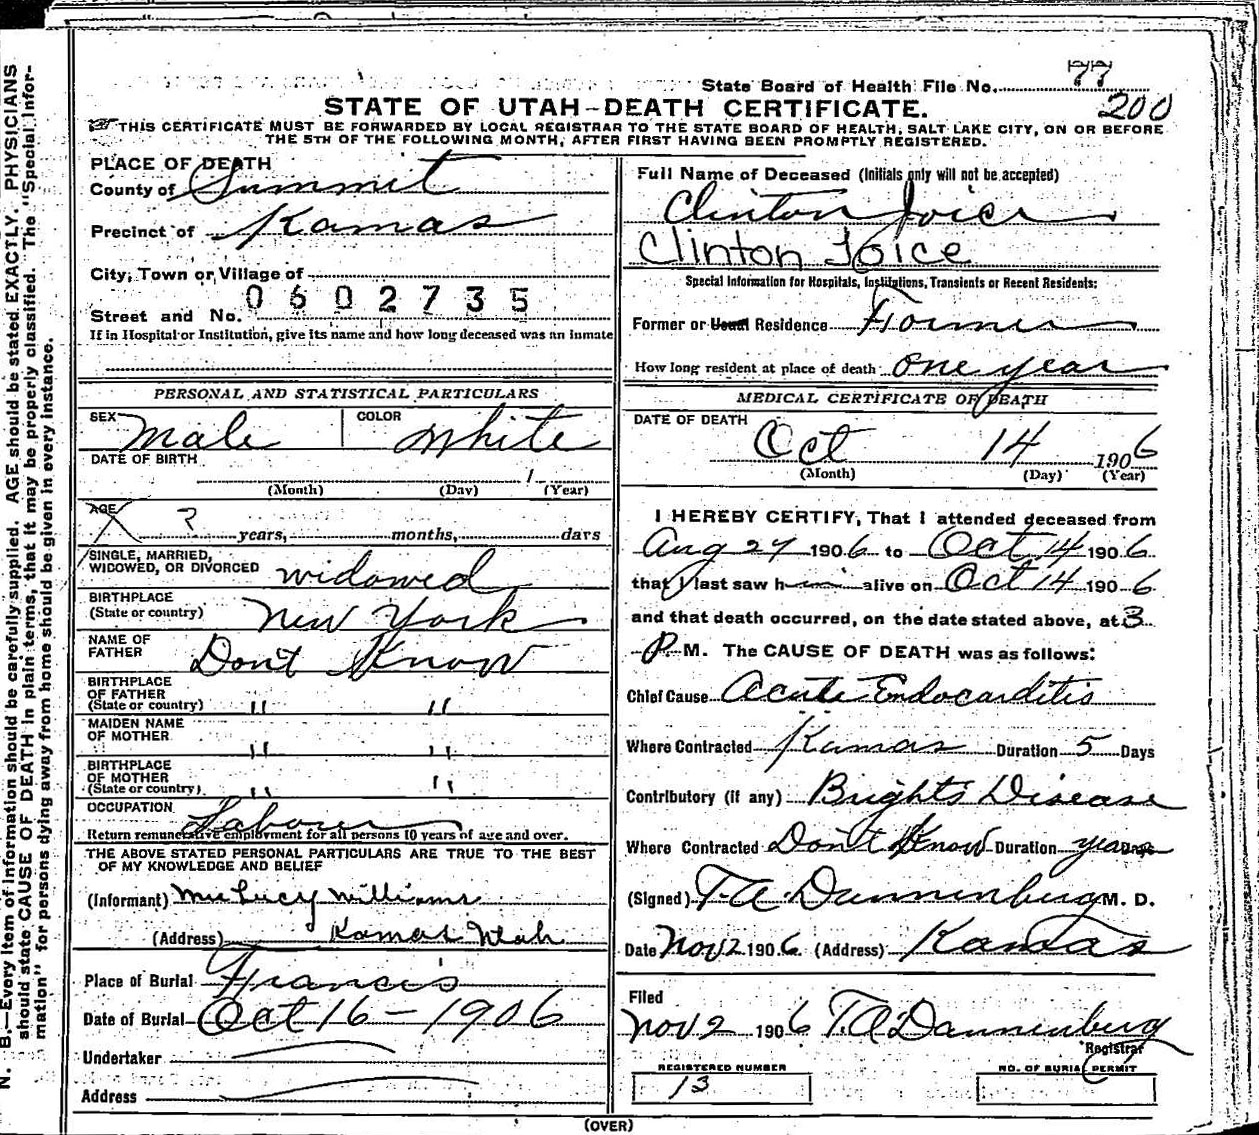 State Board of Health File No. 77
200
STATE OF UTAH–DEATH CERTIFICATE.
THIS CERTIFICATE MUST BE FORWARDED BY LOCAL REGISTRAR TO THE STATE BOARD OF HEALTH, SALT LAKE CITY, ON OR BEFORE
THE 5TH OF THE FOLLOWING MONTH, AFTER FIRST HAVING BEEN PROMPTLY REGISTERED.
N. B.—Every item of information should be carefully supplied. AGE should be stated EXACTLY. PHYSICIANS
should state CAUSE OF DEATH in plain terms, that it may be properly classified. The "Special Infor-
mation" for persons dying away from home should be given in every instance.
PLACE OF DEATH
County of Summit
Precinct of Kamas
City, Town or Village of
0602735
Street and No.
If in Hospital or Institution, give its name and how long deceased was an inmate
PERSONAL AND STATISTICAL PARTICULARS
SEX Male COLOR White
DATE OF BIRTH
1
(Month) (Day) (Year)
AGE
? years, months, days
SINGLE, MARRIED,
WIDOWED, OR DIVORCED widowed
BIRTHPLACE
(State or country) New York
NAME OF
FATHER Don't Know
BIRTHPLACE
OF FATHER
(State or country) " "
MAIDEN NAME
OF MOTHER " "
BIRTHPLACE
OF MOTHER
(State or country) " "
OCCUPATION Laborer
Return remunerative employment for all persons 10 years of age and over.
THE ABOVE STATED PERSONAL PARTICULARS ARE TRUE TO THE BEST
OF MY KNOWLEDGE AND BELIEF
(Informant) Lucy Williams
(Address) Kamas Utah
Place of Burial Francis
Date of Burial Oct 16 – 1906
Undertaker
Address
Full Name of Deceased (Initials only will not be accepted)
Clinton Joice
Clinton Joice
Special Information for Hospitals, Institutions, Transients or Recent Residents:
Former or Usual Residence Former
How long resident at place of death one year
MEDICAL CERTIFICATE OF DEATH
DATE OF DEATH
Oct 14 1906
(Month) (Day) (Year)
I HEREBY CERTIFY, That I attended deceased from
Aug 27 1906 to Oct 14 1906
that I last saw him alive on Oct 14 1906
and that death occurred, on the date stated above, at 3
P. M. The CAUSE OF DEATH was as follows:
Chief Cause Acute Endocarditis
Where Contracted Kamas Duration 5 Days
Contributory (if any) Brights Disease
Where Contracted Don't Know Duration years Days
(Signed) T. A. Dannenberg M. D.
Date Nov 2 1906 (Address) Kamas
Filed
Nov 2 1906 T. A. Dannenberg
Registrar
REGISTERED NUMBER
13
NO. OF BURIAL PERMIT
(OVER)